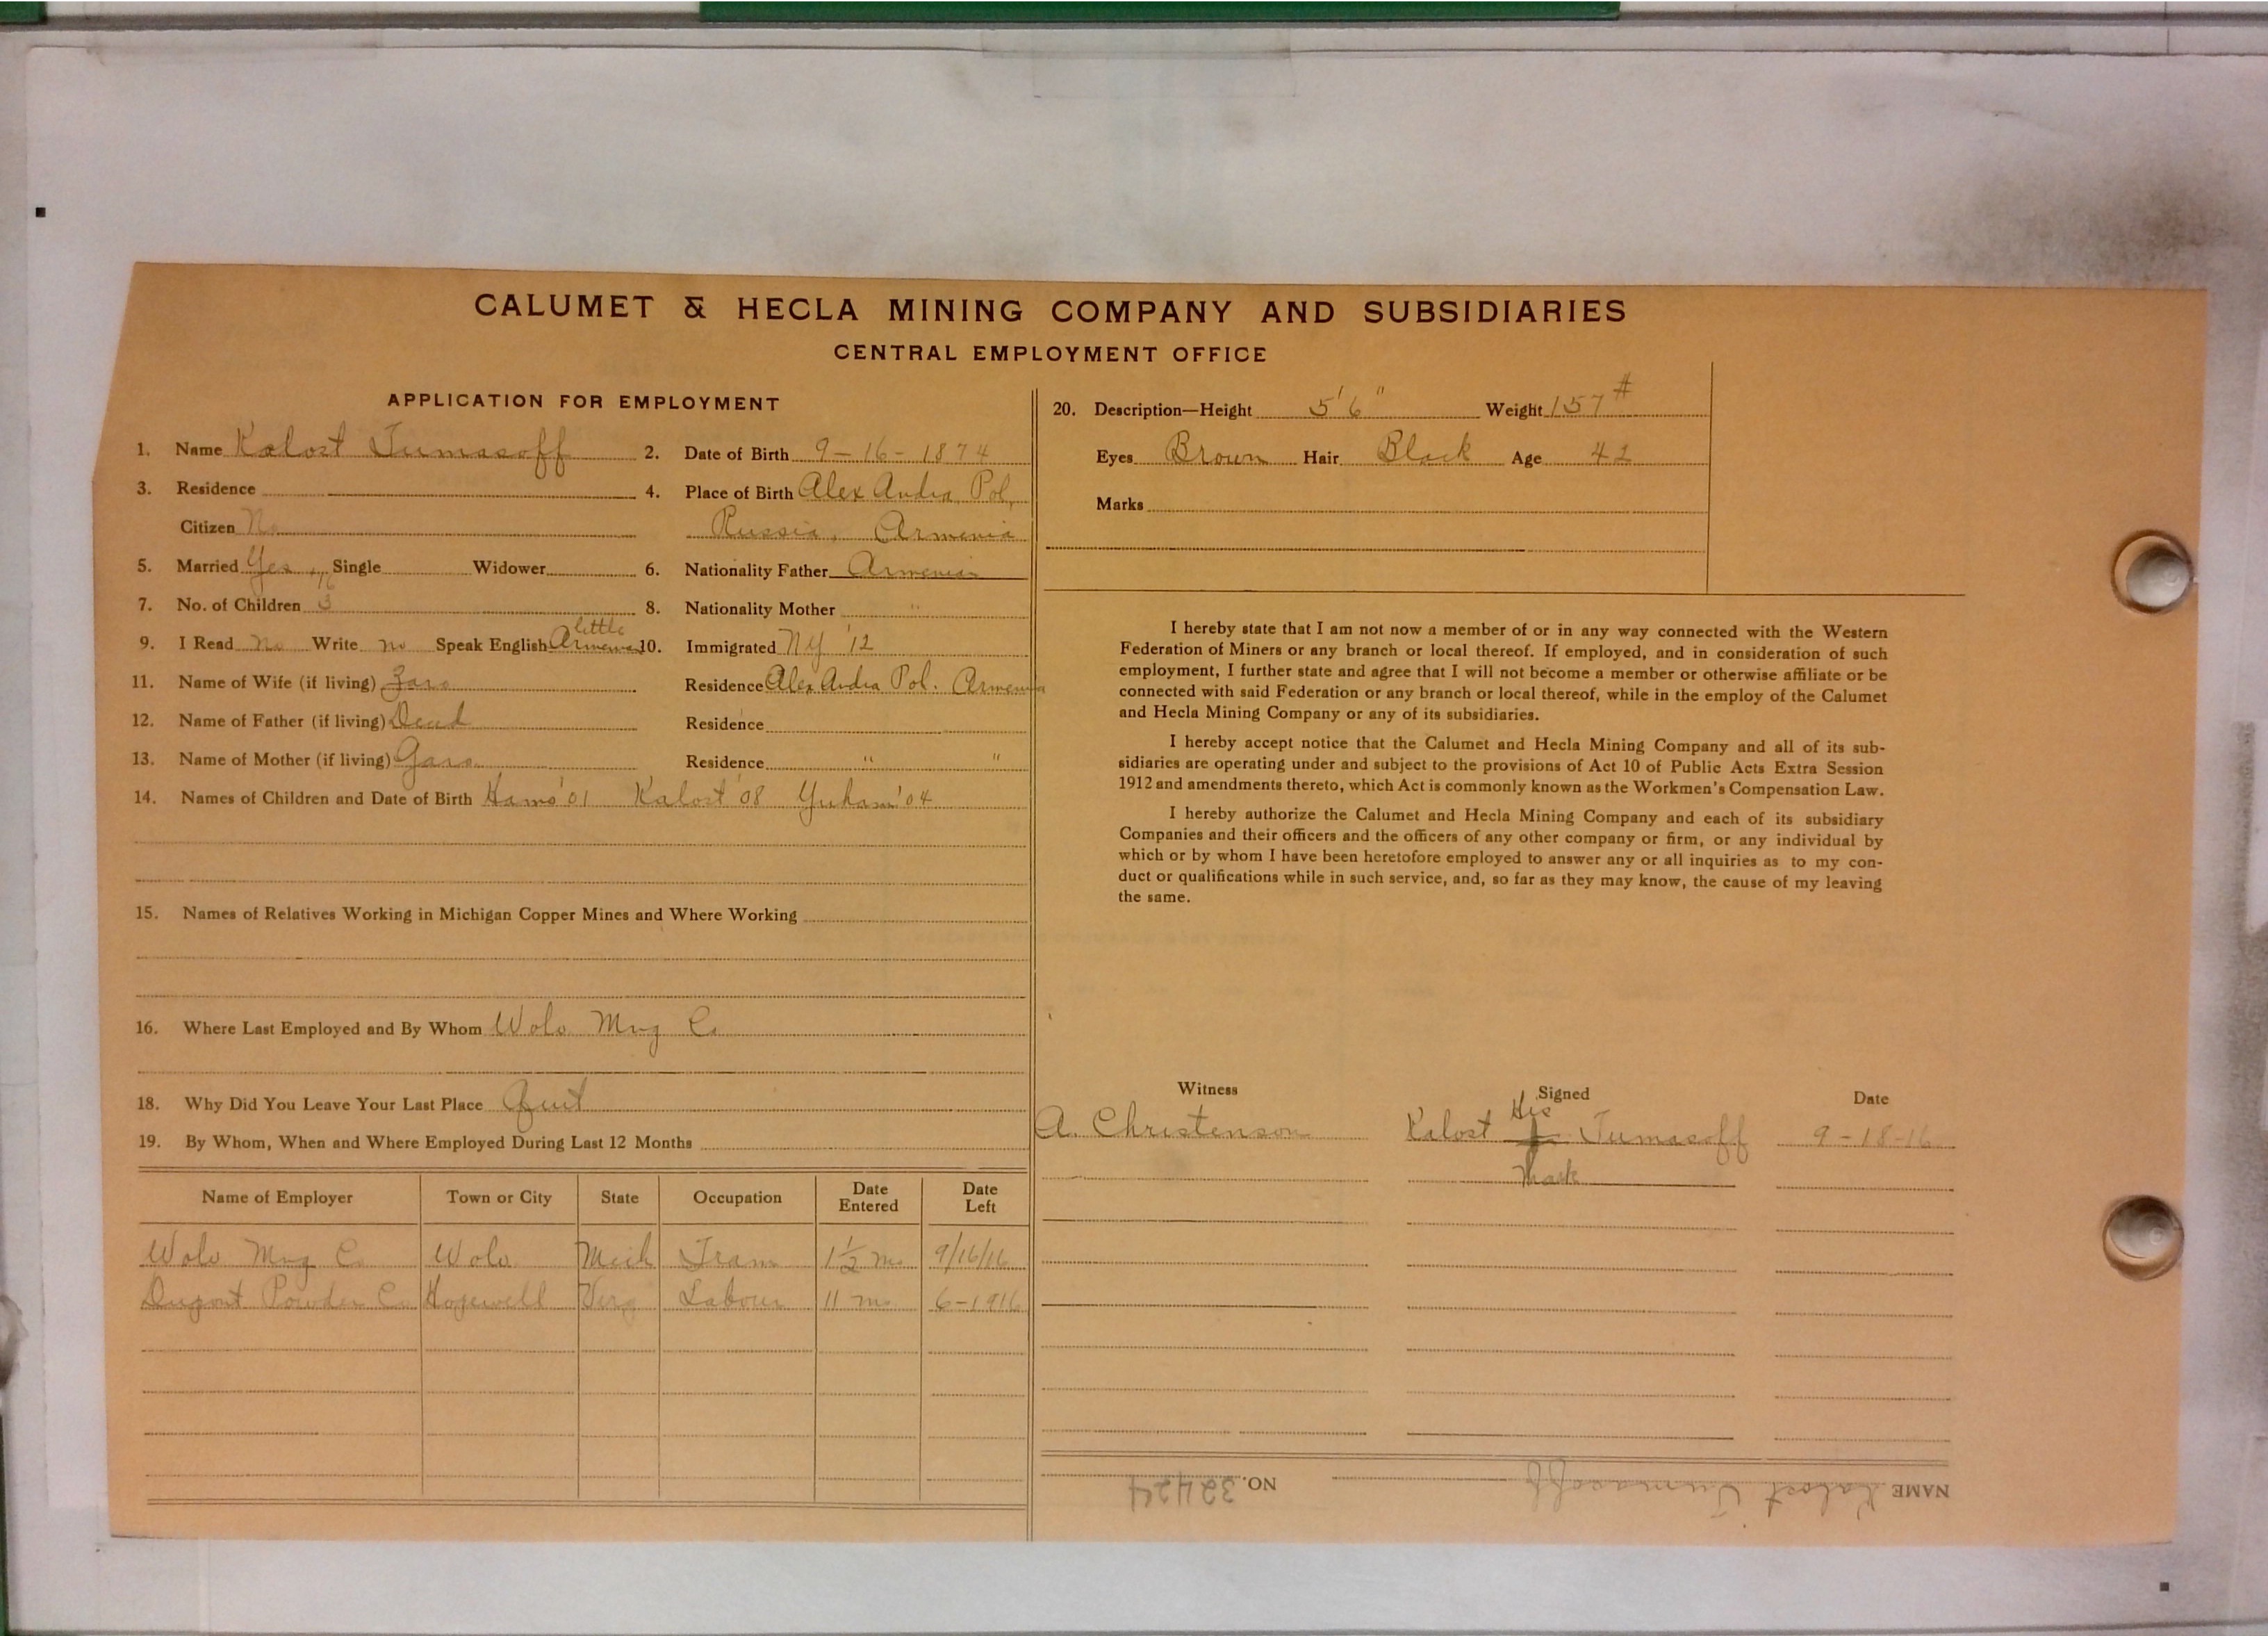 CALUMET & HECLA MINING COMPANY AND SUBSIDIARIES
CENTRAL EMPLOYMENT OFFICE
APPLICATION FOR EMPLOYMENT
1. Name Kalost Tumasoff 2. Date of Birth 9-16-1874
3. Residence 4. Place of Birth Alex Andra Pol,
Citizen No Russia, Armenia
5. Married Yes Single Widower 6. Nationality Father Armenian
7. No. of Children 3 8. Nationality Mother "
little
9. I Read No Write no Speak English Armenian 10. Immigrated NY '12
11. Name of Wife (if living) Zaro Residence Alex Andra Pol. Armenia
12. Name of Father (if living) Dead Residence
13. Name of Mother (if living) Garo Residence " "
14. Names of Children and Date of Birth Hamo '01 Kalost '08 Yuham '04
15. Names of Relatives Working in Michigan Copper Mines and Where Working
16. Where Last Employed and By Whom Wolv Mng Co
18. Why Did You Leave Your Last Place Quit
19. By Whom, When and Where Employed During Last 12 Months
Name of Employer Town or City State Occupation Date Entered Date Left
Wolv Mng Co Wolv Mich Tram 1½ mo 9/16/16
Dupont Powder Co Hopewell Virg Labour 11 mo 6-1916
20. Description—Height 5'6" Weight 157#
Eyes Brown Hair Black Age 42
Marks
I hereby state that I am not now a member of or in any way connected with the Western
Federation of Miners or any branch or local thereof. If employed, and in consideration of such
employment, I further state and agree that I will not become a member or otherwise affiliate or be
connected with said Federation or any branch or local thereof, while in the employ of the Calumet
and Hecla Mining Company or any of its subsidiaries.
I hereby accept notice that the Calumet and Hecla Mining Company and all of its sub-
sidiaries are operating under and subject to the provisions of Act 10 of Public Acts Extra Session
1912 and amendments thereto, which Act is commonly known as the Workmen's Compensation Law.
I hereby authorize the Calumet and Hecla Mining Company and each of its subsidiary
Companies and their officers and the officers of any other company or firm, or any individual by
which or by whom I have been heretofore employed to answer any or all inquiries as to my con-
duct or qualifications while in such service, and, so far as they may know, the cause of my leaving
the same.
Witness Signed Date
His
A. Christenson Kalost Tumasoff 9-18-16
Mark
NAME Kalost Tumasoff NO. 32424